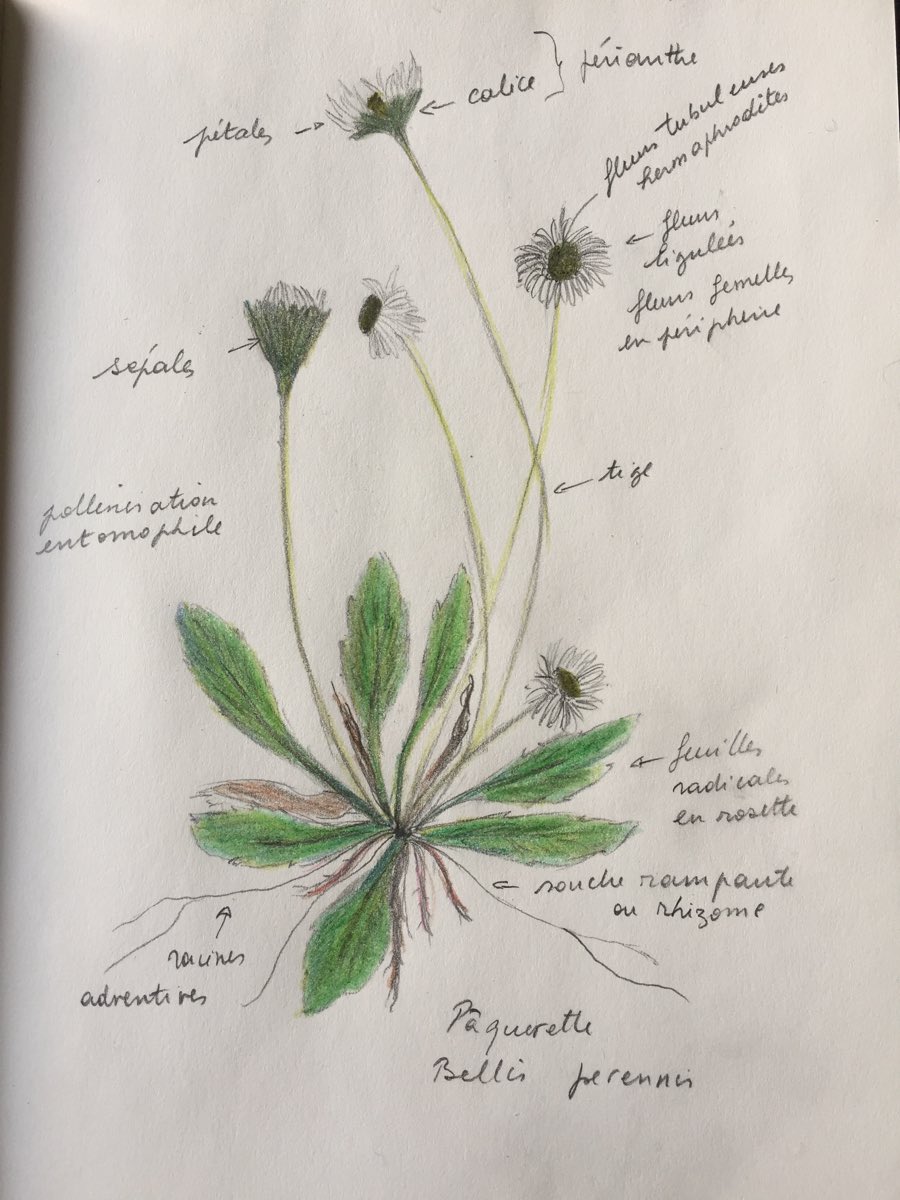 calice } périanthe
pétales
fleurs tubuleuses
hermaphrodites
fleurs
ligulées
fleurs femelles
en péripherie
sépales
tige
pollinisation
entomophile
feuilles
radicales
en rosette
souche rampante
ou rhizome
racines
adventives
Pâquerette
Bellis perennis